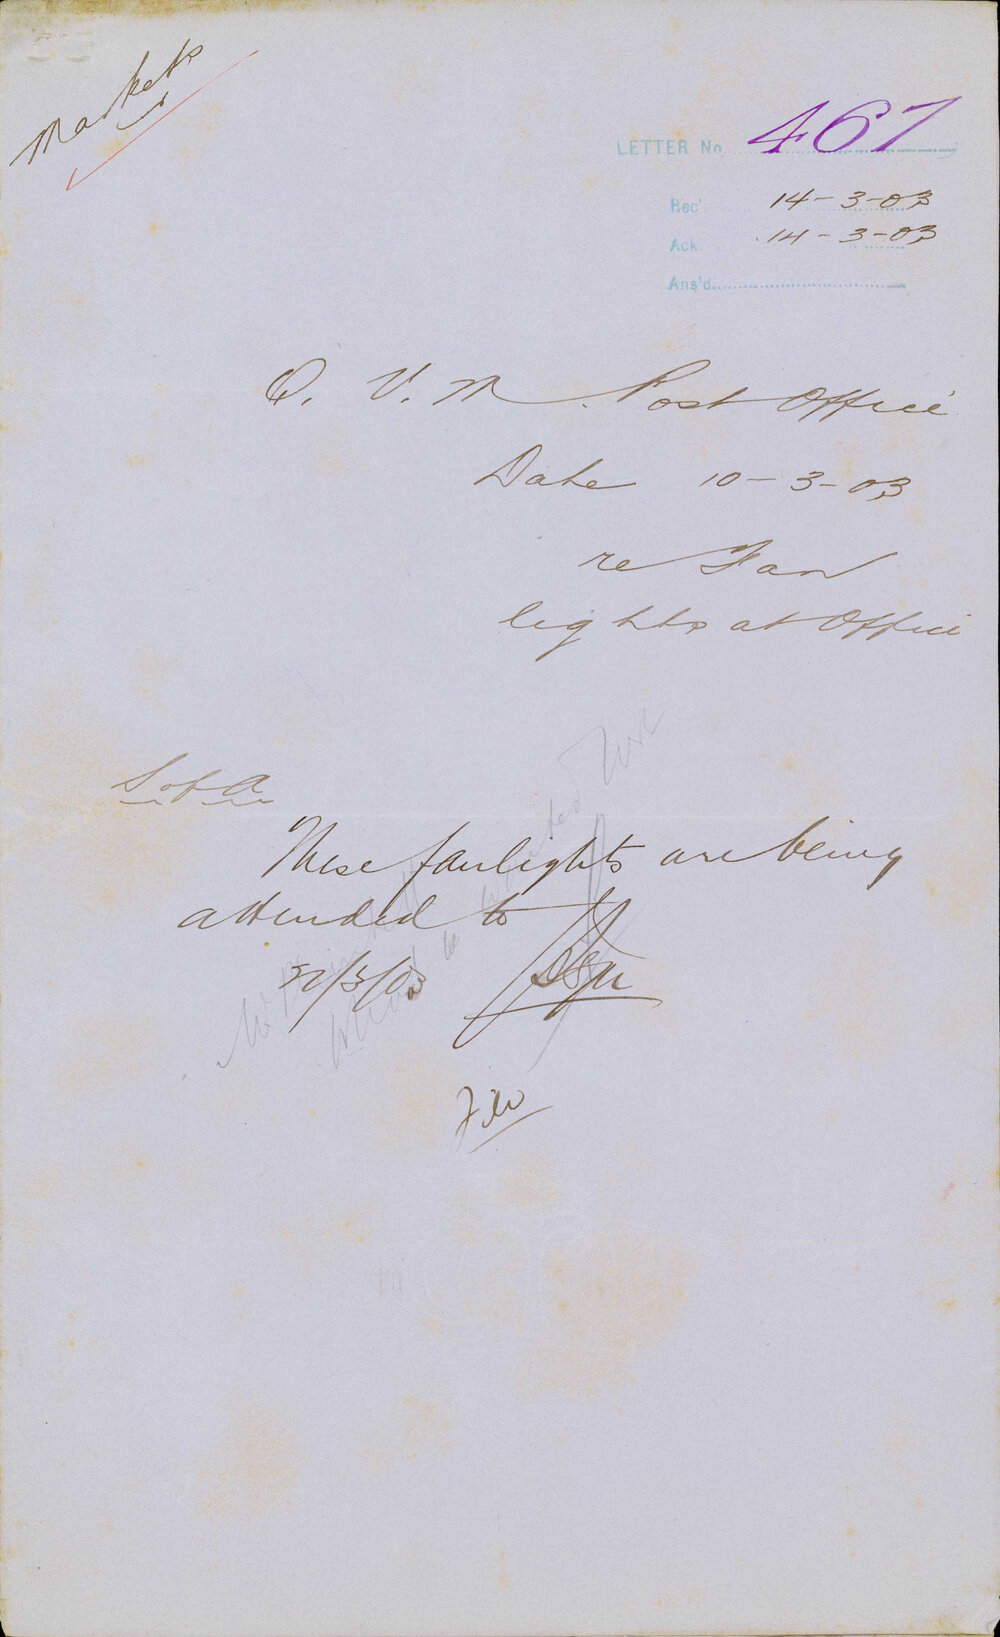 Markets
LETTER No. 467
Rec'. 14-3-03
Ack. 14-3-03
Ans'd.
Q. V. M Post Office
Date 10-3-03
re Fan
lights at Office
S of A
These fanlights are being
attended to
/3/03
File